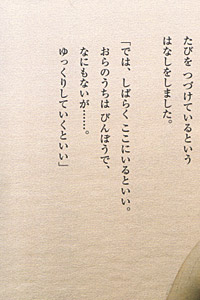 たびを つづけているという
はなしをしました。
「では、しばらく ここにいるといい。
おらのうちは びんぼうで、
なにもないが……。
ゆっくりしていくといい」